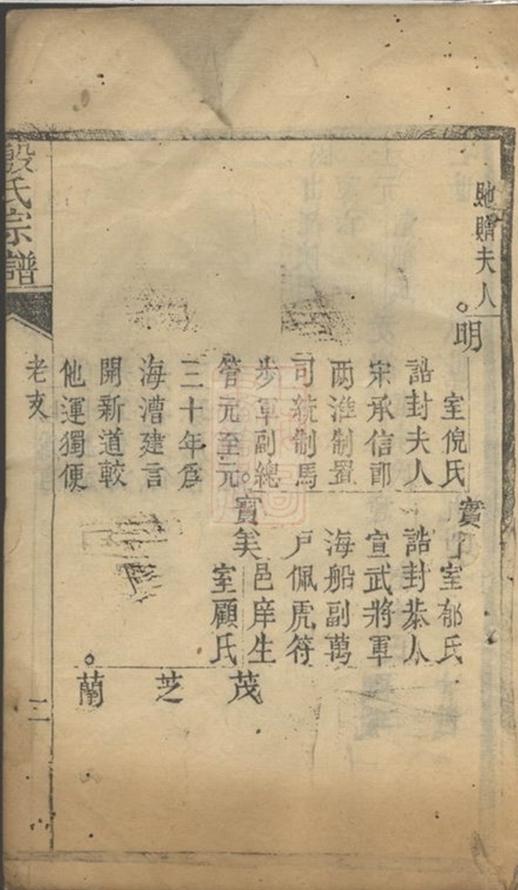 貤贈夫人
明
室倪氏
誥封夫人
宋承信郎
两淮制置
司統制馬
步軍副總
管元至元
三十年爲
海漕建言
開新道較
他運獨便
實
室郁氏
誥封恭人
宣武將軍
海船副萬
戶佩虎符
實美
邑庠生
室顧氏
茂
芝
蘭
殷氏宗譜
老支
三